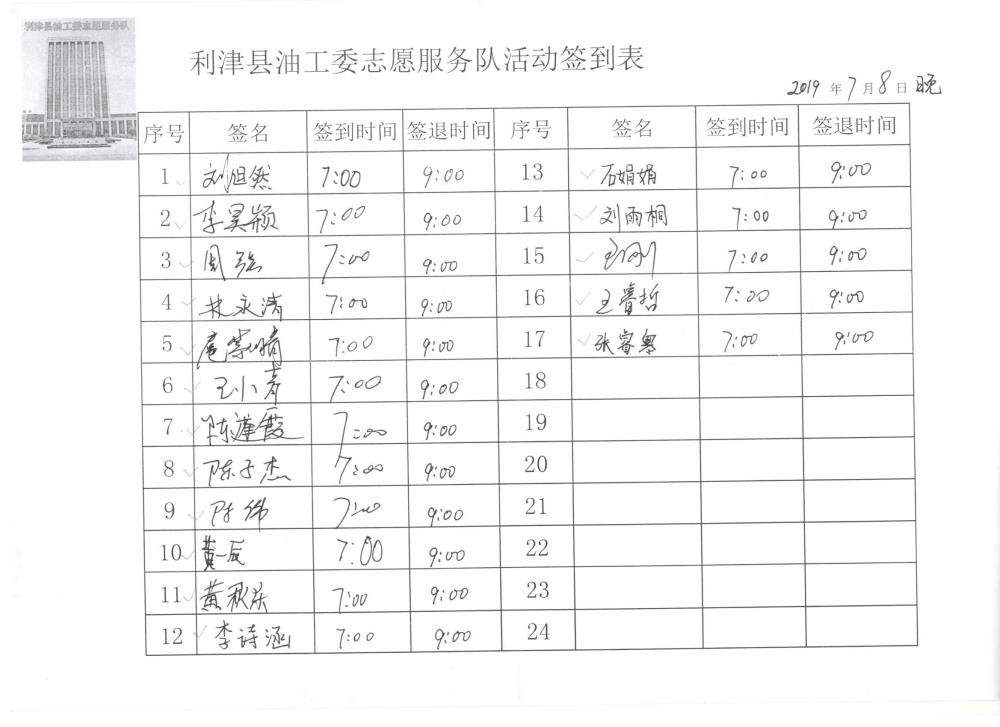 利津县油工委志愿服务队
利津县油工委志愿服务队活动签到表
2019 年 7 月 8 日 晚
序号 签名 签到时间 签退时间 序号 签名 签到时间 签退时间
1 刘旭然 7:00 9:00 13 石娟娟 7:00 9:00
2 李昊颖 7:00 9:00 14 刘雨桐 7:00 9:00
3 周强 7:00 9:00 15 王刚 7:00 9:00
4 林永清 7:00 9:00 16 王睿哲 7:00 9:00
5 7:00 9:00 17 张睿粤 7:00 9:00
6 王小青 7:00 9:00 18
7 陈莲霞 7:00 9:00 19
8 陈子杰 7:00 9:00 20
9 陈伟 7:00 9:00 21
10 黄一辰 7:00 9:00 22
11 黄秋乐 7:00 9:00 23
12 李诗涵 7:00 9:00 24